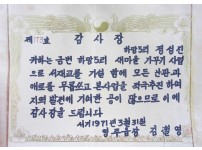 제173호
감사장
하망5리 정성진
귀하는 금번 하망5리 새마을 가꾸기 사업
으로 서재교를 가설 함에 모든 난관과
애로를 무릅쓰고 본사업을 적극추진 하여
지역발전에 기여한 공이 많으므로 이에
감사장을 드립니다
서기1971년3월31일
영주읍장 김철영